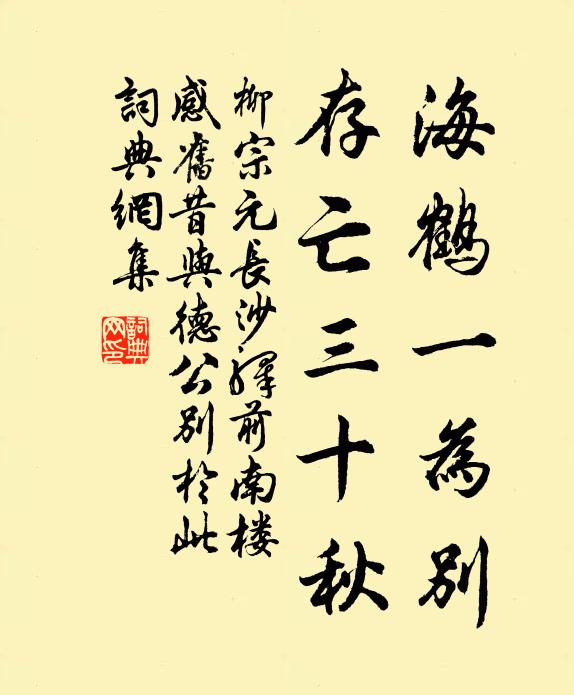 海鶴一為別
存亡三十秋
柳宗元長沙驛前南楼
感舊昔與德公別於此
詞典網集
詞典网印